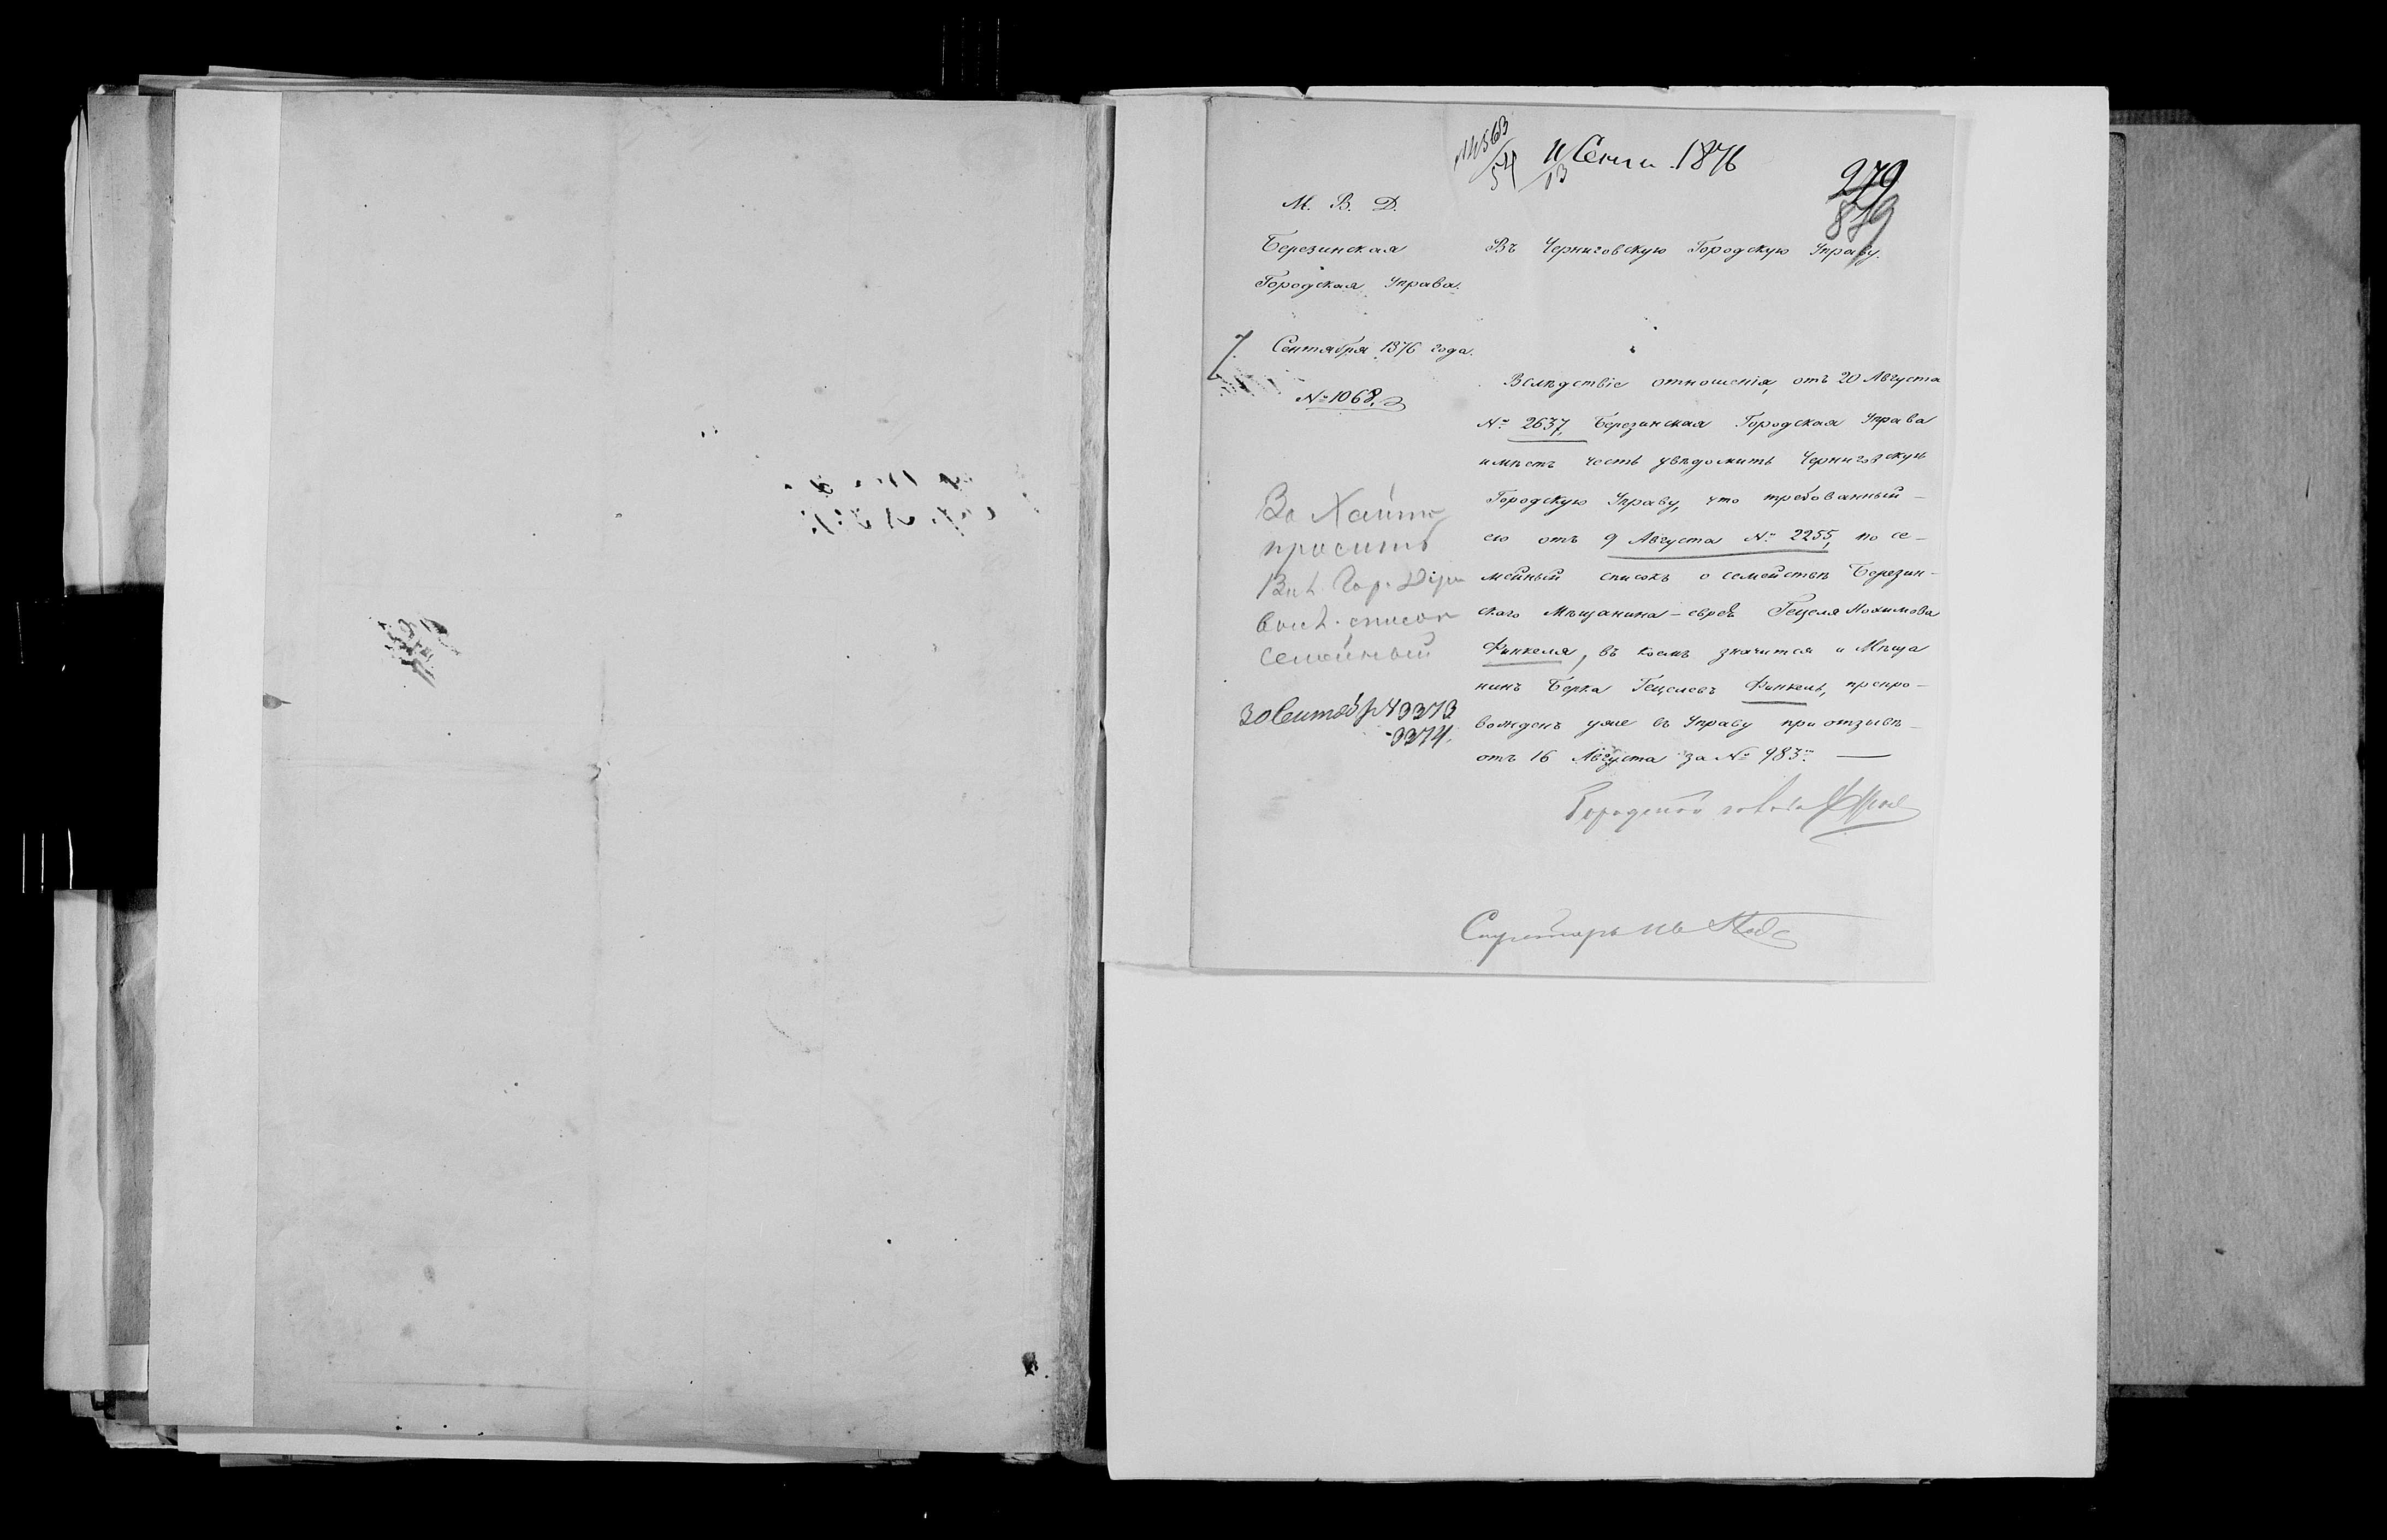 № 4563
54
11 Сент. 1876
13
279
879
М. В. Д.
Березинская
Городская Управа.
7 Сентября 1876 года.
№ 1068.
Въ Черниговскую Городскую Управу.
Вслѣдствіе отношенія, отъ 20 Августа
№ 2637, Березинская Городская Управа
имѣетъ честь увѣдомить Черниговскую
Городскую Управу, что требованный
ею отъ 9 Августа № 2255, по се-
мейный списокъ о семействѣ Березин-
скаго Мѣщанина-еврея Гецеля Нохимова
Финкеля, въ коемъ значится и Мѣща
нинъ Берка Гецелевъ Финкель, препро-
вожденъ уже въ Управу при отзывѣ
отъ 16 Августа за № 983.
Городской голова
Секретарь
просить
Гор.
список
семейный
30 Сентабр № 3373
3374.